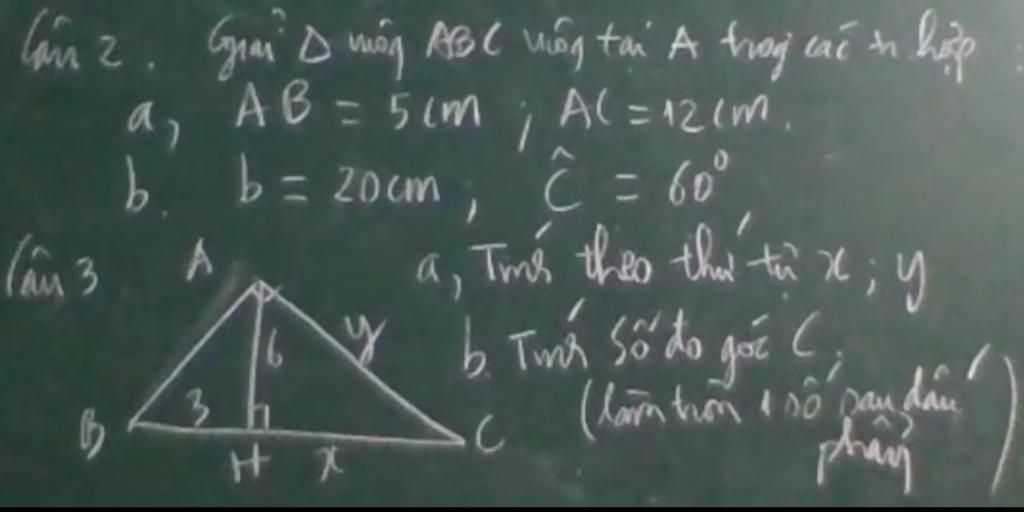 Câu 2. Giải Δ vuông ABC vuông tại A trong các tr hợp :
a, AB = 5cm ; AC = 12cm.
b. b = 20cm ; Ĉ = 60°
Câu 3
a, Tính theo thứ tự x ; y
b. Tính số đo góc C.
(làm tròn 1 số sau dấu phẩy)
A
6
y
3
B
H
x
C